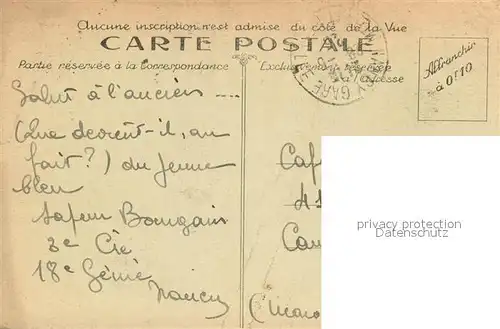 Aucune inscription n'est admise du côté de la Vue
CARTE POSTALE
Partie réservée à la Correspondance
Exclusivement réservée
à l'Adresse
Affranchir
à 0f10
GARE
Salut à l'ancien ....
(Que devient-il, au
fait?) du jeune
bleu
Sapeur Bourgain
3e Cie
18e Génie
Nancy
Caf
41
Cam
(Maro
privacy protection
Datenschutz